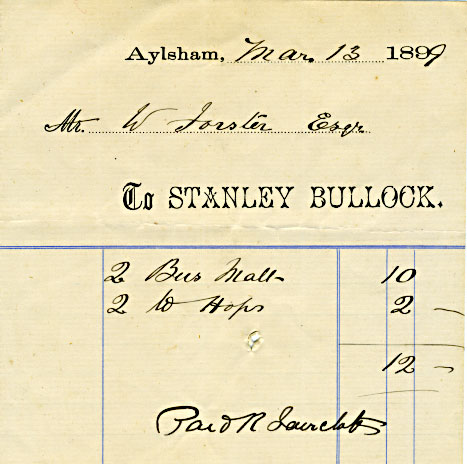 Aylsham, Mar. 13 1899
Mr. W Forster Esqr
To STANLEY BULLOCK.
2 Bus Malt 10
2 lb Hops 2 —
12 —
Paid R